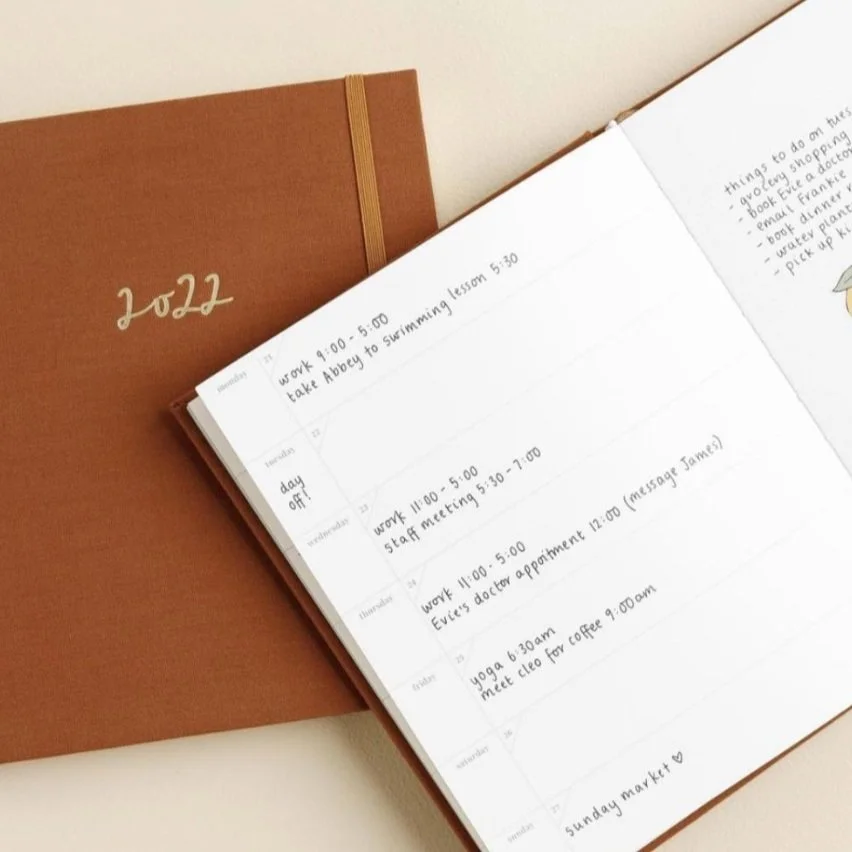 2022
monday
21
work 9:00 - 5:00
take Abbey to swimming lesson 5:30
tuesday
22
day
off!
wednesday
23
work 11:00 - 5:00
staff meeting 5:30 - 7:00
thursday
24
work 11:00 - 5:00
Evie's doctor appoitment 12:00 (message James)
friday
25
yoga 6:30am
meet cleo for coffee 9:00am
saturday
26
sunday
27
sunday market ♡
things to do on tues
- grocery shopping
- book Evie a doctor
- email Frankie
- book dinner r
- water plant
- pick up ki